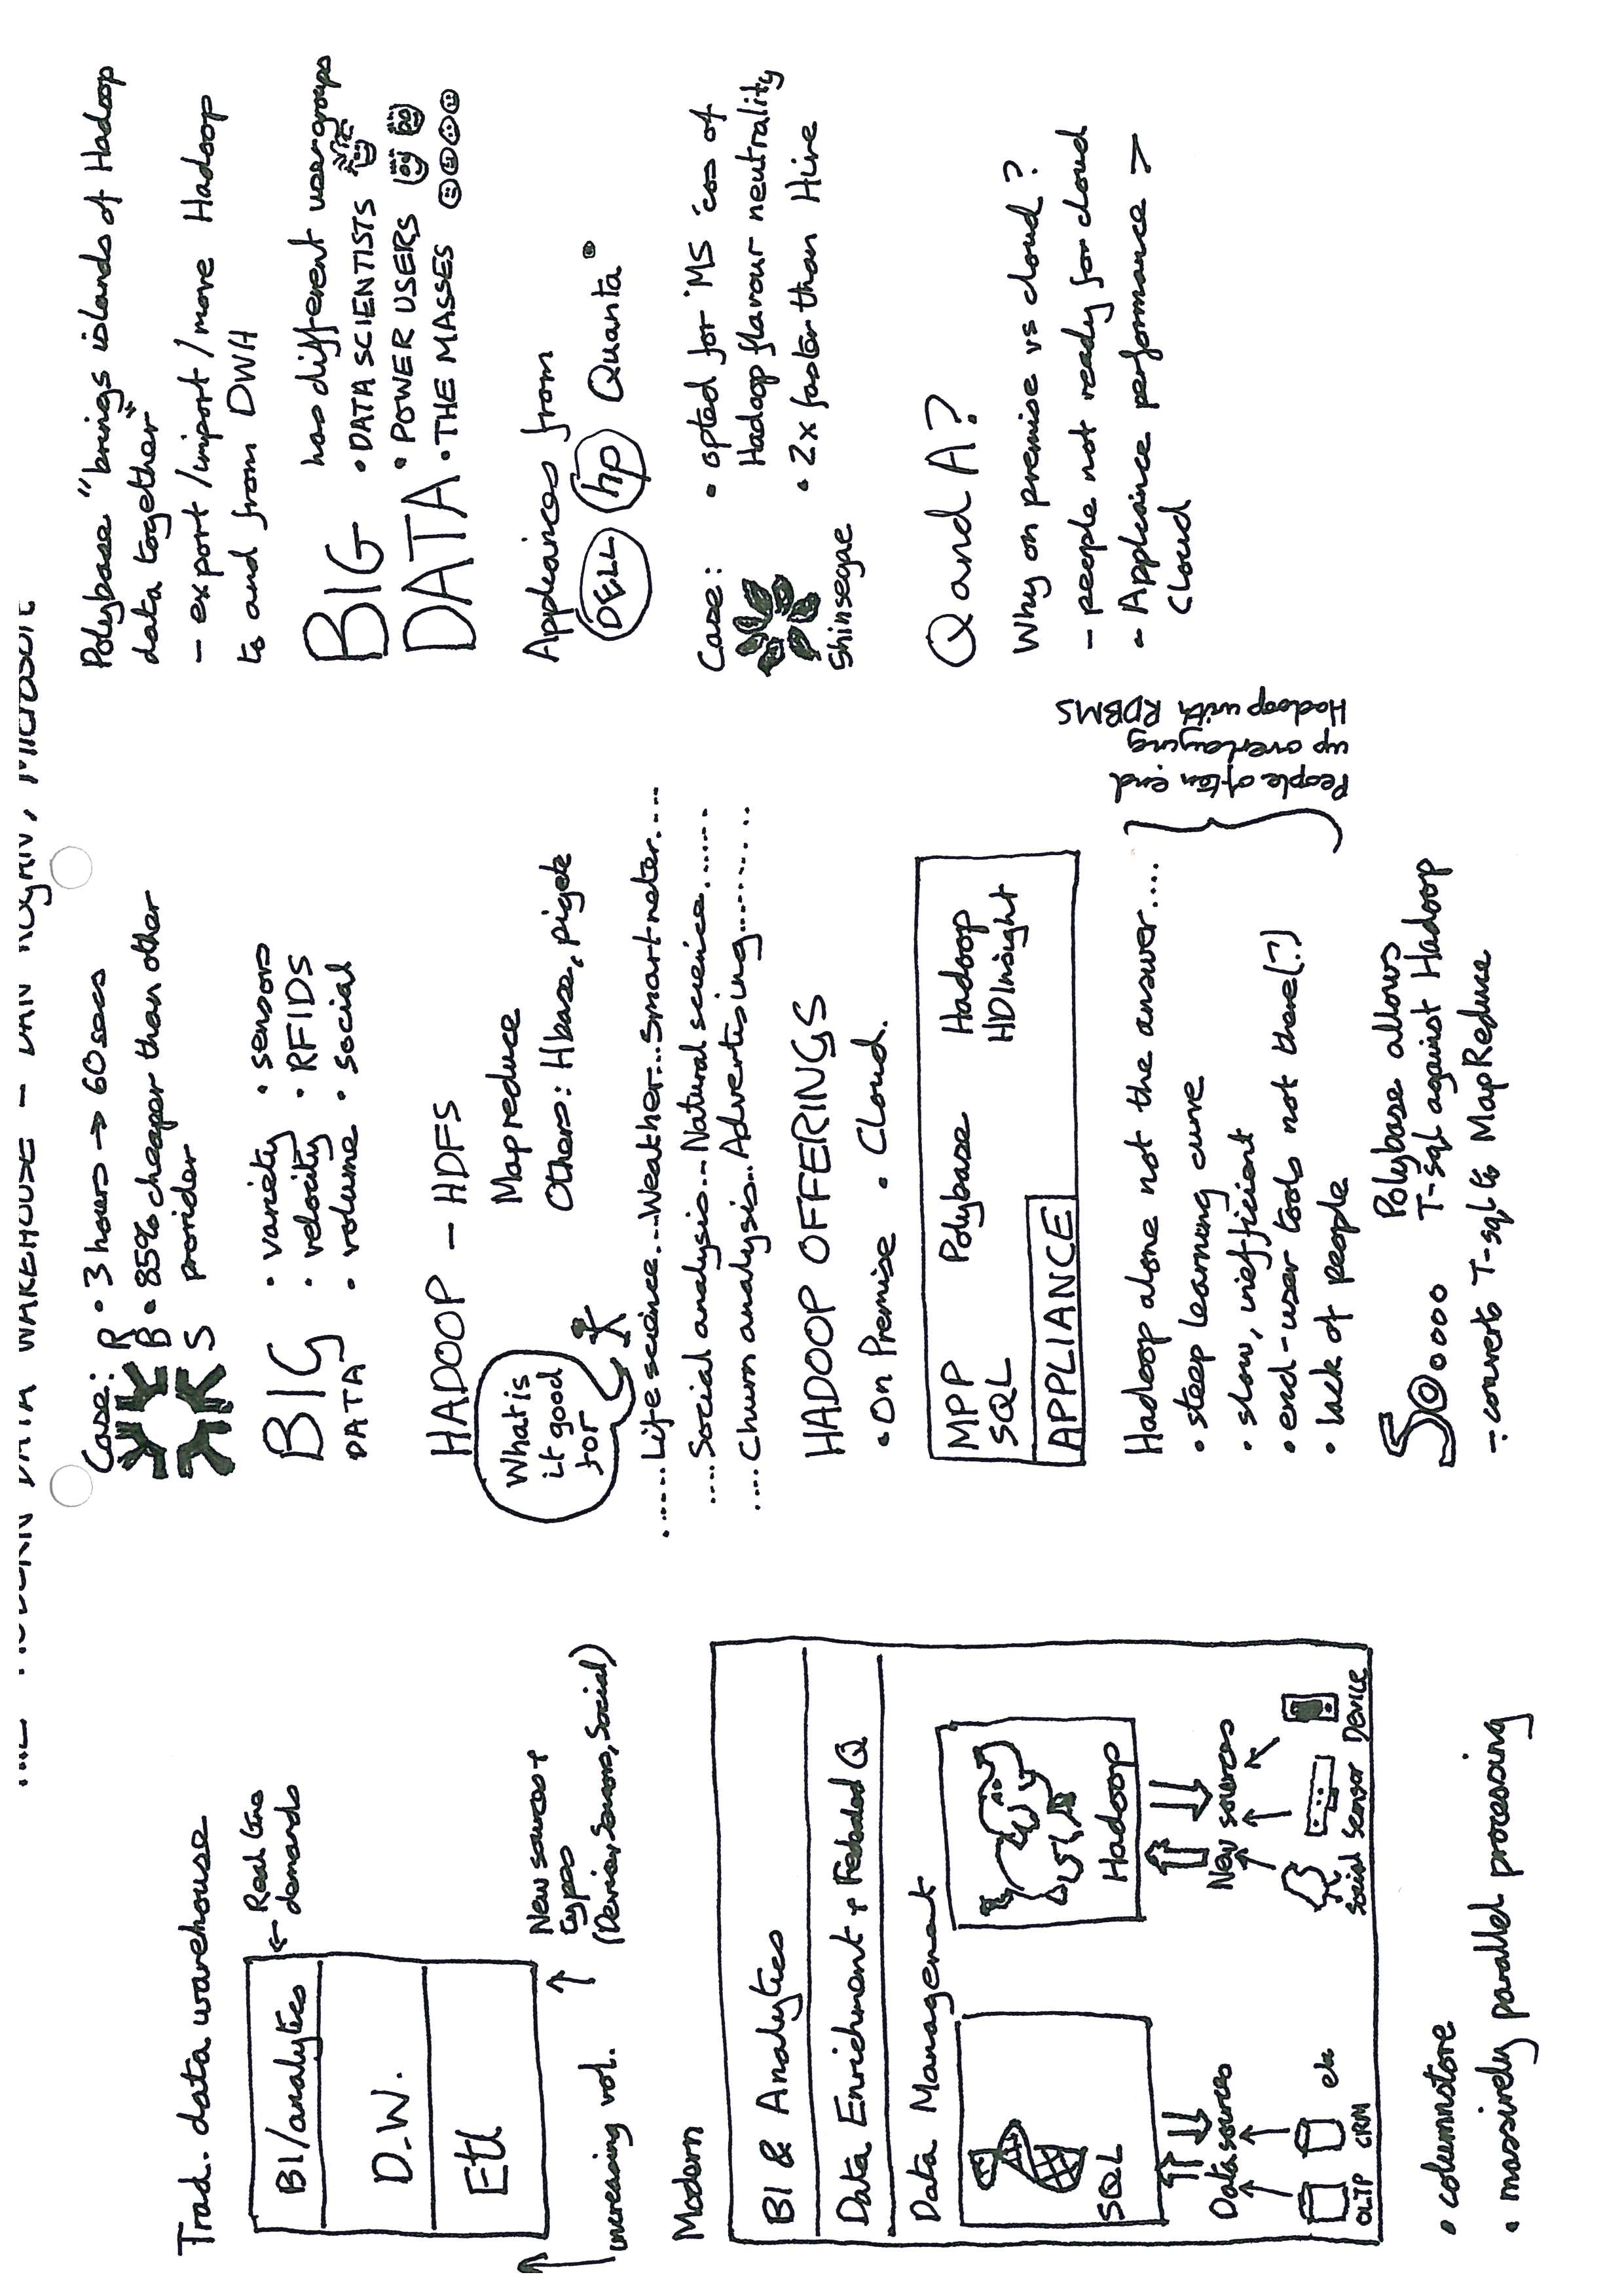 THE MODERN DATA WAREHOUSE - DAN KOGAN, Microsoft
Trad. data warehouse
BI/analytics
Real time
demands
D.W.
Etl
increasing vol.
New sources +
types
(Device, Sensors, Social)
Modern
BI & Analytics
Data Enrichment + Federated Q
Data Management
SQL
Hadoop
Data sources
New sources
OLTP
CRM
etc
Social
Sensor
DEVICE
• columnstore
• massively parallel processing
Case:
RBS
• 3 hours → 60 secs
• 85% cheaper than other
provider
BIG
DATA
• variety
• velocity
• volume
• sensors
• RFIDS
• social
HADOOP - HDFS
Mapreduce
Others: Hbase, pig etc
What is
it good
for
......Life science...Weather...Smartmeter....
....Social analysis...Natural science......
....Churn analysis...Advertising........
HADOOP OFFERINGS
• On Premise • Cloud.
MPP
SQL
Polybase
Hadoop
HDInsight
APPLIANCE
Hadoop alone not the answer....
• steep learning curve
• slow, inefficient
• end-user tools not there(?)
• lack of people
People often end
up overlaying
Hadoop with RDBMS
Soooooo
Polybase allows
T-sql against Hadoop
- converts T-sql to MapReduce
Polybase "brings islands of Hadoop
data together"
- export/import/move Hadoop
to and from DWH
BIG
DATA
has different user groups
• DATA SCIENTISTS
• POWER USERS
• THE MASSES
Appliances from
DELL hp Quanta
Case:
Shinsegae
• opted for MS 'cos of
Hadoop flavour neutrality
• 2x faster than Hive
Q and A?
Why on premise vs cloud?
- people not ready for cloud
- Appliance performance >
cloud